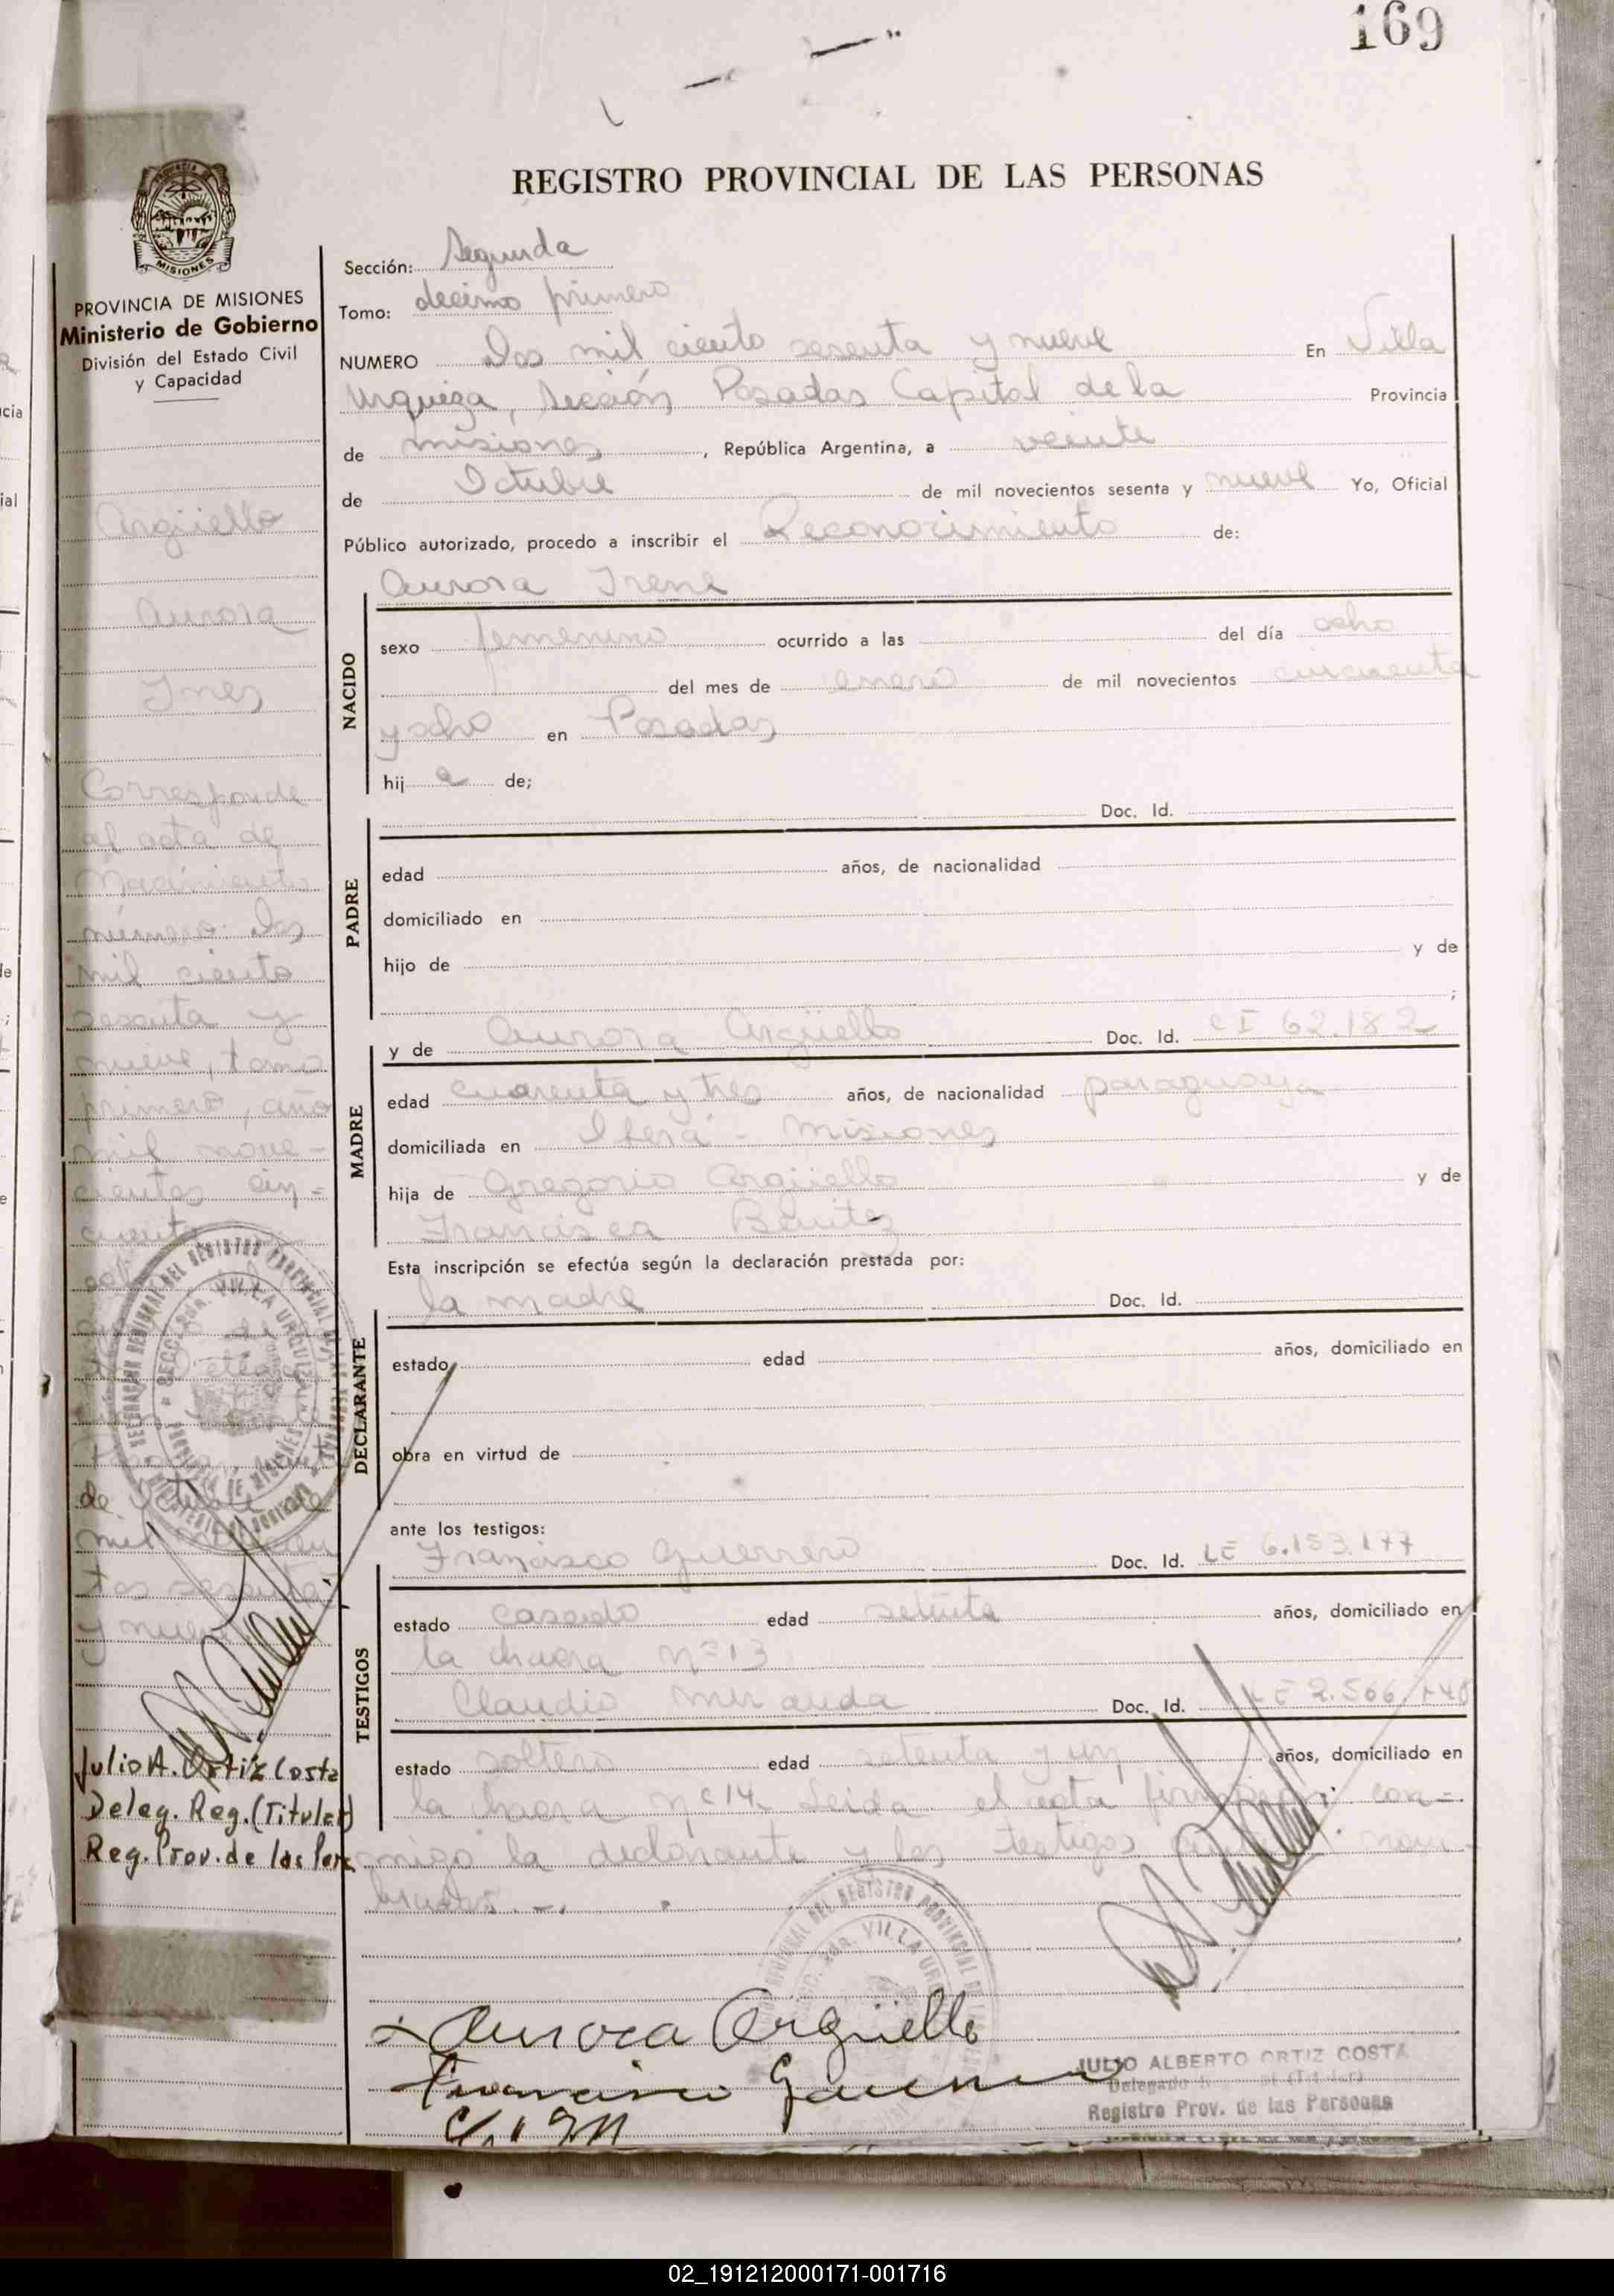 169
REGISTRO PROVINCIAL DE LAS PERSONAS
MISIONES
PROVINCIA DE MISIONES
Ministerio de Gobierno
División del Estado Civil
y Capacidad
Argüello
Aurora
Ines
Corresponde
al acta de
Nacimiento
número: Dos
mil ciento
sesenta y
nueve, tomo
primero, año
mil nove-
cientos cin-
cuenta
de Octubre de
mil
tos sesenta
y nueve
Julio A. Ortiz Costa
Deleg. Reg. (Titular)
Reg. Prov. de las Pers
Sección: Segunda
Tomo: decimo primero
NUMERO Dos mil ciento sesenta y nueve En Villa
Urquiza, Sección Posadas Capital de la Provincia
de misiones, República Argentina, a veinte
de Octubre de mil novecientos sesenta y nueve Yo, Oficial
Público autorizado, procedo a inscribir el Reconocimiento de:
Aurora Irene
NACIDO
sexo femenino ocurrido a las del día ocho
del mes de enero de mil novecientos cincuenta
y ocho en Posadas
hij a de;
Doc. Id.
PADRE
edad años, de nacionalidad
domiciliado en
hijo de y de
;
y de Aurora Argüello Doc. Id. CI 62.182
MADRE
edad cuarenta y tres años, de nacionalidad paraguaya
domiciliada en Iberá - Misiones
hija de Gregorio Argüello y de
Francisca Benitez
Esta inscripción se efectúa según la declaración prestada por:
la madre Doc. Id.
DECLARANTE
estado edad años, domiciliado en
obra en virtud de
ante los testigos:
Francisco Guerrero Doc. Id. LE 6.153.177
TESTIGOS
estado casado edad setenta años, domiciliado en
la chacra nº 13
Claudio Miranda Doc. Id. LE 2.566.
estado soltero edad setenta y un años, domiciliado en
la chacra nº 14. Leida el acta firmaron con-
migo la declarante y los testigos nom-
brados.-.
Aurora Argüello
Francisco Guerrero
JULIO ALBERTO ORTIZ COSTA
Delegado
Registro Prov. de las Personas
02_191212000171-001716